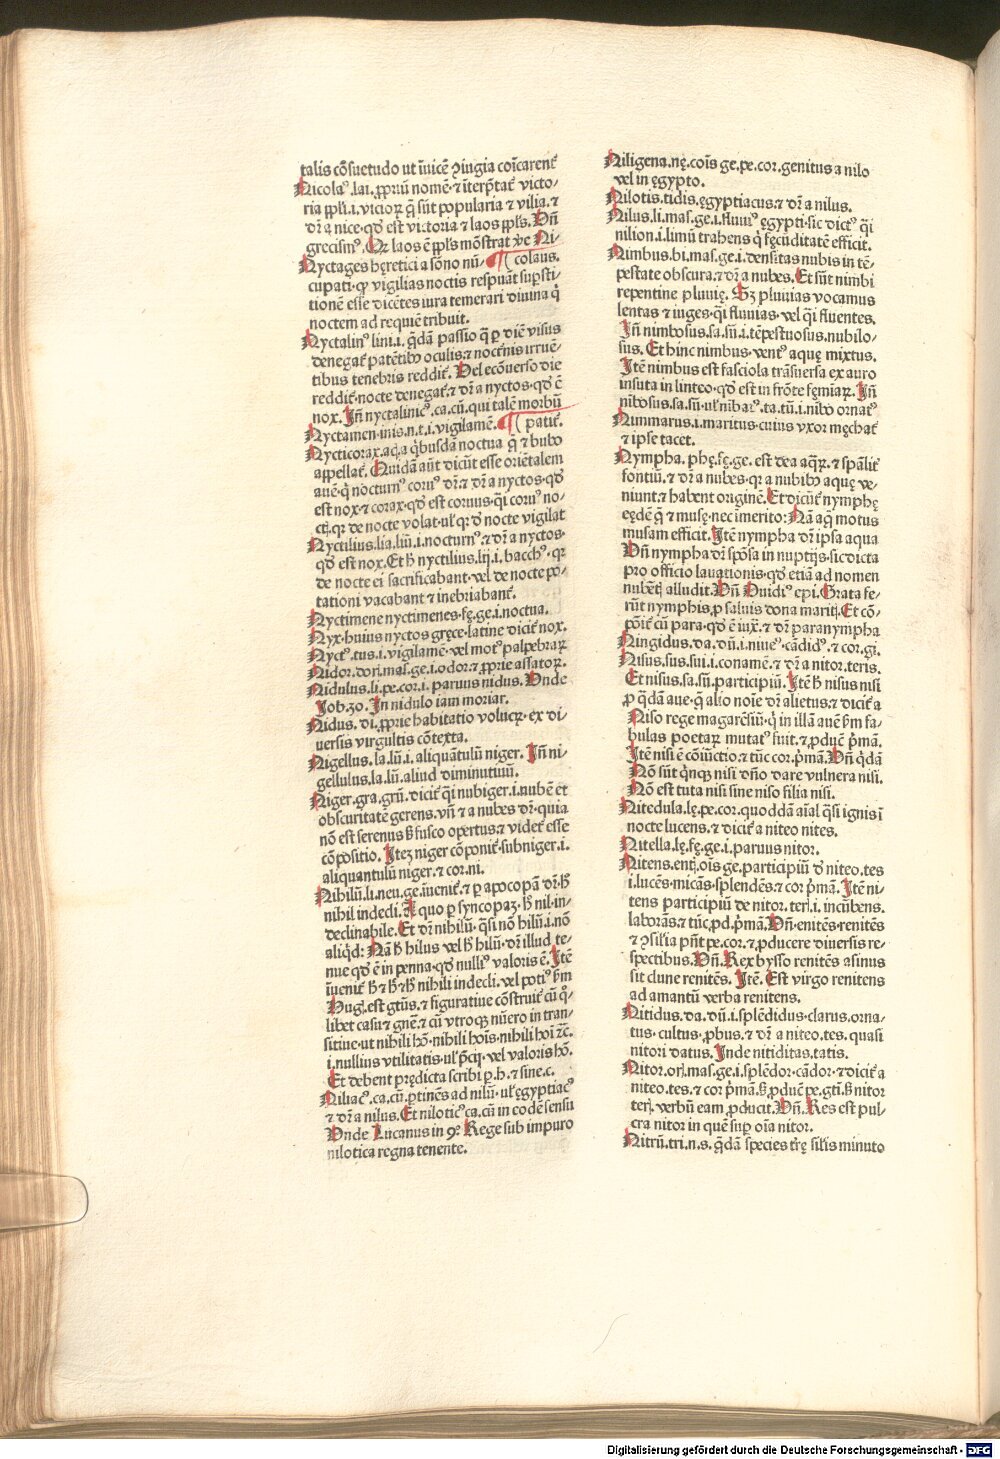 talis cõsuetudo ut ĩuicẽ ꝯiugia coĩcarent̃
Nicolaꝰ.lai.ꝓpriũ nomẽ·⁊ ĩterp̃tat̃ victo⸗
ria ppl̃i.i.vicioꝝ q̃ sũt popularia ⁊ vilia.⁊
dr̃ a nice·qď est victoria ⁊ laos ppl̃s. Vñ
grecismꝰ. Qꝛ laos ẽ ppl̃s mõstrat ẏe Ni⸗
Nyctages hęretici a sõno nũ⸗ ¶ colaus.
cupati·ꝙ vigilias noctis respuãt suꝑsti⸗
tionẽ esse dicẽtes iura temerari diuina q̃
noctem ad requiẽ tribuit.
Nyctalinꝰ lini.i. q̃dã passio q̃ ꝑ diẽ visus
denegat̃ patẽtibꝰ oculis.⁊ noct̃nis irruẽ⸗
tibus tenebris reddit̃. Vel ecõuerso die
reddit̃·nocte denegat̃.⁊ dr̃ a nyctos·qď ẽ
nox. Iñ nyctalinicꝰ.ca.cũ.qui talẽ morbũ
Nyctamen·inis.n.t.i.vigilamẽ. ¶ patit̃.
Nycticorax.acꝭ.a q̃busdã noctua q̃ ⁊ bubo
appellat̃. Quidã aũt dicũt esse oriẽtalem
auẽ·q̃ nocturnꝰ coruꝰ dr̃.⁊ dr̃ a nyctos·qď
est nox·⁊ corax·qď est coruus·q̃i coruꝰ no⸗
ctꝭ.qꝛ de nocte volat·ul̃ qꝛ ď nocte vigilat
Nyctilius.lia.liũ.i.nocturnꝰ.⁊ dr̃ a nyctos·
qď est nox.Et h̃ nyctilius.lij.i.bacchꝰ.qꝛ
de nocte ei sacrificabant·vel de nocte po⸗
tationi vacabant ⁊ inebriabant̃.
Nyctimene nyctimenes·fę.ge.i.noctua.
Nyx·huius nyctos gręce·latine dicit̃ nox.
Nyctꝰ.tus.i.vigilamẽ·vel motꝰ palpebraꝝ
Nidor.dorꝭ.mas̃.ge.i.odor.⁊ ꝓprie assatoꝝ.
Nidulus.li.pe.cor.i. paruus nidus. Vnde
Job.30. In nidulo iam moriar.
Nidus. di.ꝓprie habitatio volucꝝ·ex di⸗
uersis virgultis cõtexta.
Nigellus.la.lũ.i.aliquãtulũ niger. Iñ ni⸗
gellulus.la.lũ.aliud diminutiuũ.
Niger.gra.grũ.dicit̃ q̃i nubiger.i.nubẽ et
obscuritatẽ gerens.vñ ⁊ a nubes dr̃·quia
nõ est serenus s̃ fusco opertus.⁊ videt̃ esse
cõpositio. Iteꝫ niger cõponit̃·subniger.i.
aliquantulũ niger.⁊ cor.ni.
Nihilũ.li.neu.ge.ĩuenit̃.⁊ ꝑ apocopã dr̃·h̃
nihil indecli. A quo ꝑ syncopaꝫ· h̃ nil·in⸗
declinabile. Et dr̃ nihilũ·q̃si nõ hilũ.i.nõ
aliq̃d: Nã h̃ hilus vel h̃ hilũ·dr̃ illud te⸗
nue qď ẽ in penna·qď nulliꝰ valoris ẽ. Itẽ
ĩuenit̃ h̃ ⁊ h̃ ⁊ h̃ nihili indecli. vel potiꝰ ẜm
Hug̃.est gt̃us.⁊ figuratiue cõstruit̃ cũ q̃⸗
libet casu ⁊ gñe.⁊ cũ vtroqꝫ nũero in tran⸗
sitiue·ut nihili hõ·nihili hoĩs·nihili hoĩ ⁊c̃.
i.nullius vtilitatis·ul̃ p̃cij·vel valoris hõ.
Et debent prędicta scribi ꝑ.h.⁊ sine.c.
Niliacꝰ.ca.cũ.ꝑtinẽs ad nilũ·ul̃ ęgyptiacꝰ
⁊ dr̃ a nilus. Et niloticꝰ ca.cũ in eodẽ sensu
Vnde Lucanus in 9º Rege sub impuro
nilotica regna tenente.
Niligena.nę.coĩs ge.pe.cor.genitus a nilo
vel in ęgypto.
Nilotis.tidis.ęgyptiacus.⁊ dr̃ a nilus.
Nilus.li.mas̃.ge.i.fluuiꝰ ęgypti·sic dictꝰ q̃i
nilion.i.limũ trahens q̃ fęcũditatẽ efficit.
Nimbus.bi.mas̃.ge.i.densitas nubis in tẽ⸗
pestate obscura.⁊ dr̃ a nubes. Et sũt nimbi
repentine pluuię. Sꝫ pluuias vocamus
lentas ⁊ iuges·q̃i fluuias·vel q̃i fluentes.
Iñ nimbosus.sa.sũ.i.tẽpestuosus.nubilo⸗
sus. Et hinc nimbus·ventꝰ aquę mixtus.
Itẽ nimbus est fasciola trãsuersa ex auro
insuta in linteo·qď est in frõte fęmiaꝝ. Iñ
nĩbosus.sa.sũ·ul̃ nĩbatꝰ.ta.tũ.i.nĩbo ornatꝰ
Nimmarus.i.maritus·cuius vxor męchat̃
⁊ ipse tacet.
Nympha. phę.fę.ge. est dea aqꝝ.⁊ spãlit̃
fontiũ.⁊ dr̃ a nubes·qꝛ a nubibꝰ aquę ve⸗
niunt·⁊ habent originẽ.Et dicũt̃ nymphę
eędẽ q̃ ⁊ musę·nec imerito: Nã aq̃ motus
musam efficit. Itẽ nympha dr̃ ipsa aqua
Vñ nympha dr̃ spõsa in nuptijs·sic dicta
pro officio lauationis·qď etiã ad nomen
nubẽtꝭ alludit. Vñ Ouidiꝰ epi. Grata fe⸗
rũt nymphis ꝓ saluis dona maritꝭ. Et cõ⸗
põit̃ cũ para·qď ẽ iux̃.⁊ dr̃ paranympha
Ningidus.da.dũ.i.niueꝰ·cãdidꝰ.⁊ cor.gi.
Nisus.sus.sui.i.conamẽ.⁊ dr̃ a nitor.teris.
Et nisus.sa.sũ.participiũ. Itẽ h̃ nisus nisi
ꝓ q̃dã aue·q̃ alio noĩe dr̃ alietus.⁊ dicit̃ a
Niso rege magarẽsiũ·q̃ in illã auẽ ẜm fa⸗
bulas poetaꝝ mutatꝰ fuit.⁊ ꝓduẽ p̃mã.
Itẽ nisi ẽ cõiũctio.⁊ tũc cor.p̃mã.Vñ q̃dã
Nõ sũt q̃nqꝫ nisi dño dare vulnera nisi.
Nõ est tuta nisi sine niso filia nisi.
Nitedula.lę.pe.cor.quoddã aĩal q̃si ignis ĩ
nocte lucens.⁊ dicit̃ a niteo nites.
Nitella.lę.fę.ge.i.paruus nitor.
Nitens.entꝭ.oĩs ge.participiũ ď niteo.tes
i.lucẽs·micãs·splendẽs.⁊ cor p̃mã. Itẽ ni⸗
tens participiũ de nitor.terꝭ.i. incũbens.
laborãs.⁊ tũc̃ ꝓd.p̃mã. Vñ·enitẽs·renitẽs
⁊ ꝯsil̃ia pñt pe.cor.⁊ ꝓducere diuersis re⸗
spectibus. Vñ. Rex bysso renitẽs asinus
sit dune renitẽs. Itẽ. Est virgo renitens
ad amantũ verba renitens.
Nitidus.da.dũ.i.splẽdidus·clarus.orna⸗
tus·cultus·ꝓbus.⁊ dr̃ a niteo.tes. quasi
nitori datus. Inde nitiditas.tatis.
Nitor.orꝭ.mas̃.ge.i.splẽdor·cãdor·⁊ dicit̃ a
niteo.tes.⁊ cor p̃mã.s̃ ꝓduẽ pe.gtĩ.s̃ nitor
terꝭ.verbũ eam ꝓducit. Vñ. Res est pul⸗
cra nitor in quẽ suꝑ oĩa nitor.
Nitrũ.tri.n.s. q̃dã species tr̃ę sil̃is minuto
Digitalisierung gefördert durch die Deutsche Forschungsgemeinschaft - DFG